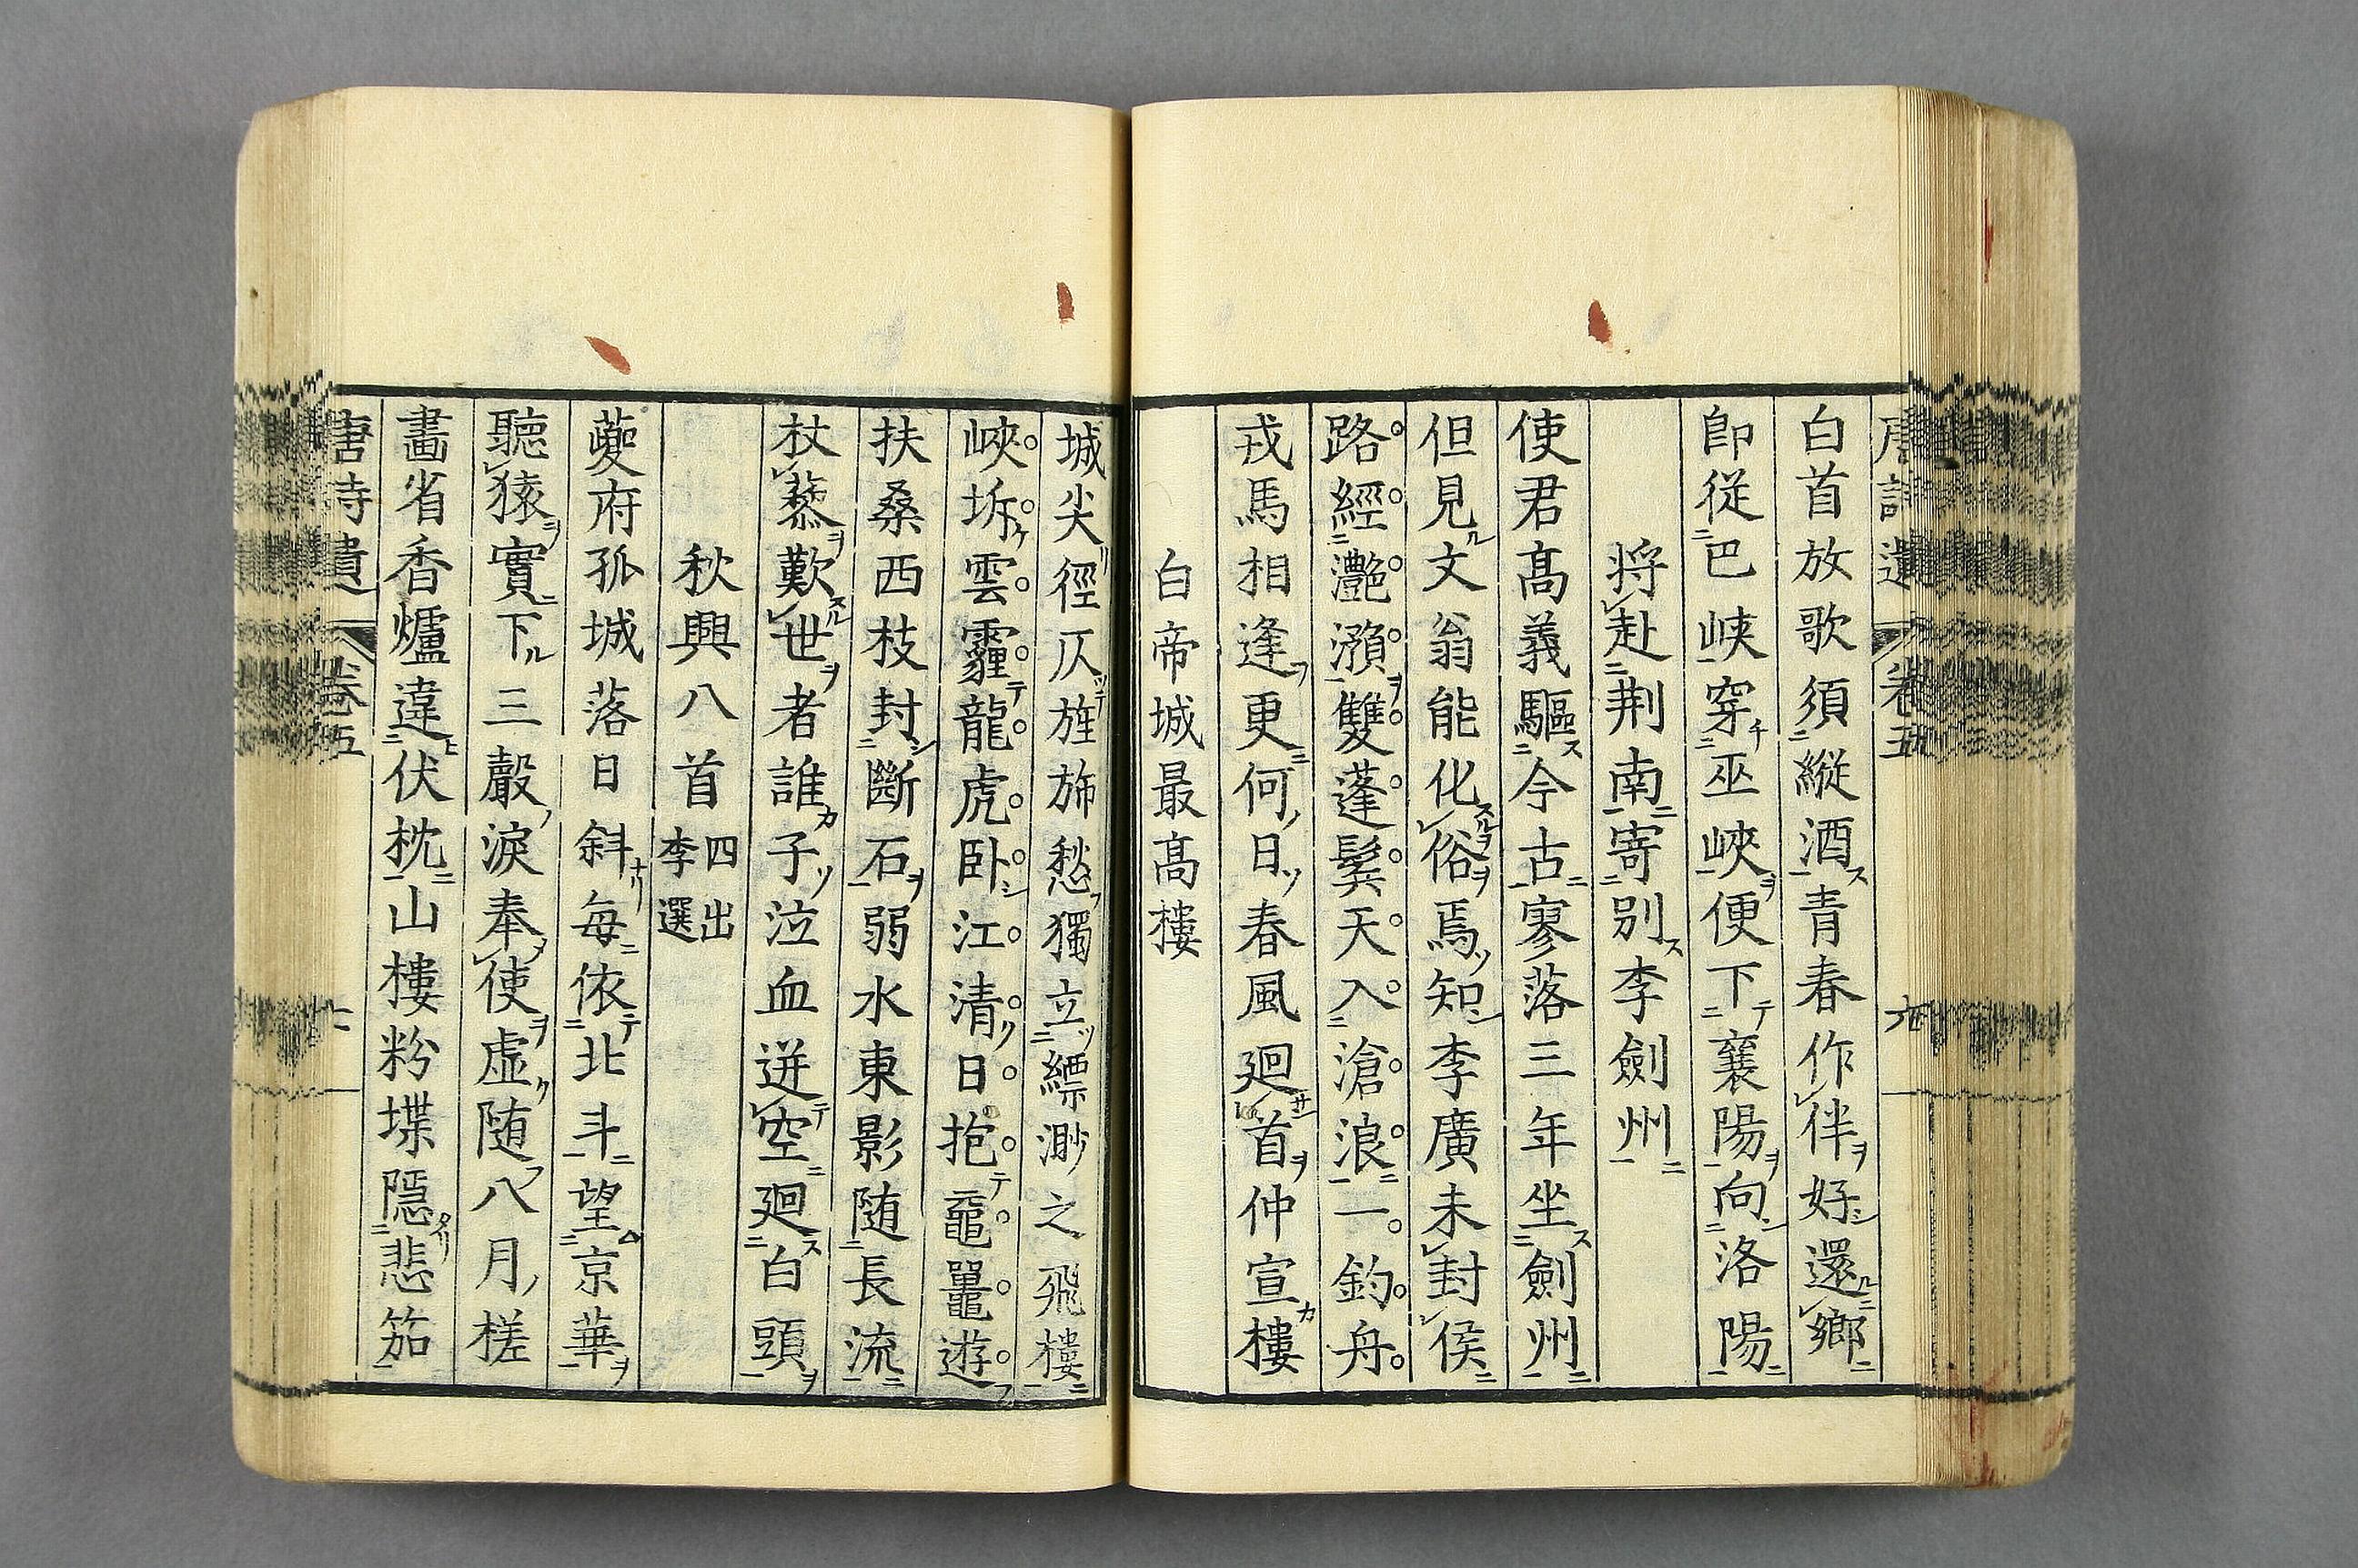 白首放歌須縱酒青春作伴好還鄉
卽從巴峽穿巫峽便下襄陽向洛陽
将赴荆南寄别李劍州
使君髙義驅今古寥落三年坐劍州
但見文翁能化俗焉知李廣未封侯
路經灔澦雙蓬鬂天入滄浪一釣舟
戎馬相逢更何日春風廻首仲宣樓
白帝城最髙樓
城尖徑仄旌斾愁獨立縹渺之飛樓
峽坼雲霾龍虎卧江清日抱黿鼉遊
扶桑西枝封斷石弱水東影随長流
杖藜歎世者誰子泣血迸空廻白頭
秋興八首 四出李選
夔府孤城落日斜每依北斗望京華
聽猿實下三聲淚奉使虚随八月槎
畵省香爐違伏枕山樓粉堞隱悲笳
唐詩遺 卷五